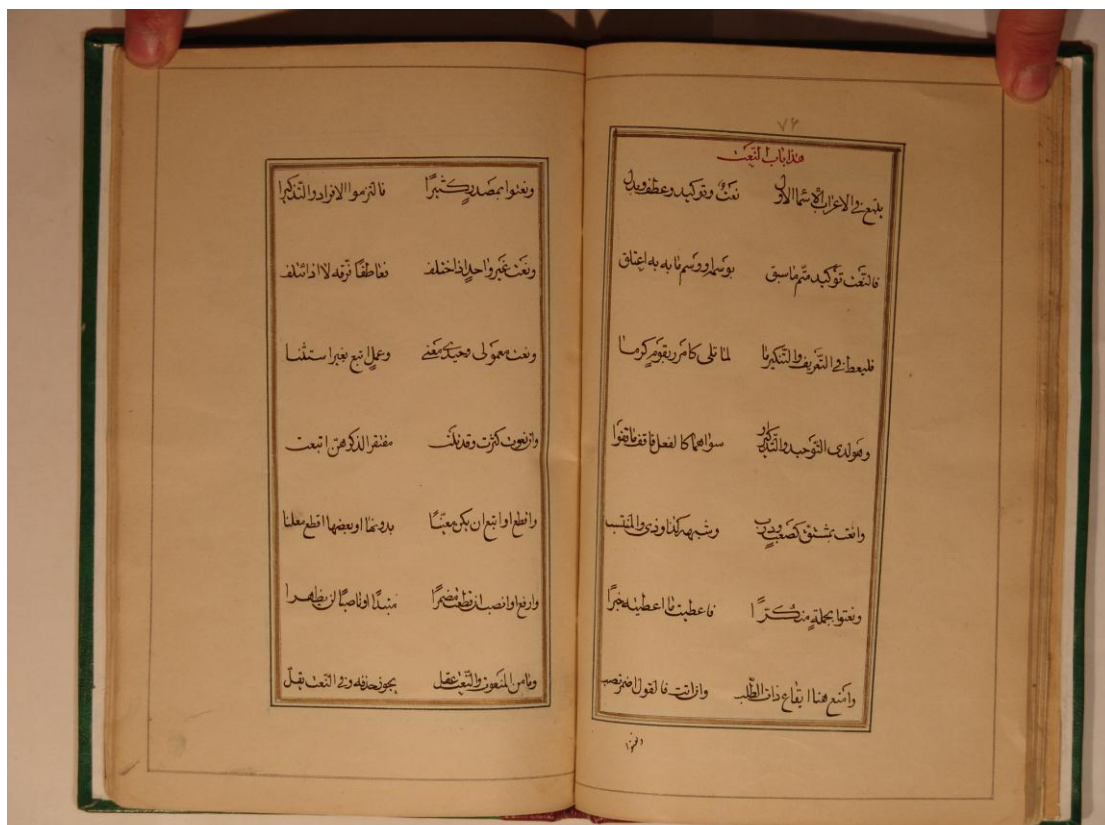 ٧٢
هذا باب النعت
يتبع في الاعراب الاسما الاول نعت وتوكيد وعطف وبدل
فالنعت توكيد متم ما سبق بوسمه او وسم ما به به اعتلق
فليعط في التعريف والتنكير ما لما تلى كامرر بقوم كرما
وهو لدى التوحيد والتذكير او سواهما كالفعل فاقف ما قفوا
وانعت بمشتق كصعب وذرب وشبهه كذا وذي والمنتسب
ونعتوا بجملة منكرا فاعطيت ما اعطيته خبرا
وامنع هنا ايقاع ذات الطلب وان اتت فالقول اضمر نصب
ونعتوا
ونعتوا بمصدر كثيرا فالتزموا الافراد والتذكيرا
ونعت غير واحد اذا اختلف فعاطفا فرقه لا اذا ائتلف
ونعت معمولى وحيدى معنى وعمل اتبع بغير استثنا
وان نعوت كثرت وقد تلت مفتقرا لذكرهن اتبعت
واقطع او اتبع ان يكن معينا بدونها او بعضها اقطع معلنا
وارفع او انصب ان قطعت مضمرا مبتدا او ناصبا لن يظهرا
وما من المنعوت والنعت عقل يجوز حذفه وفي النعت يقل